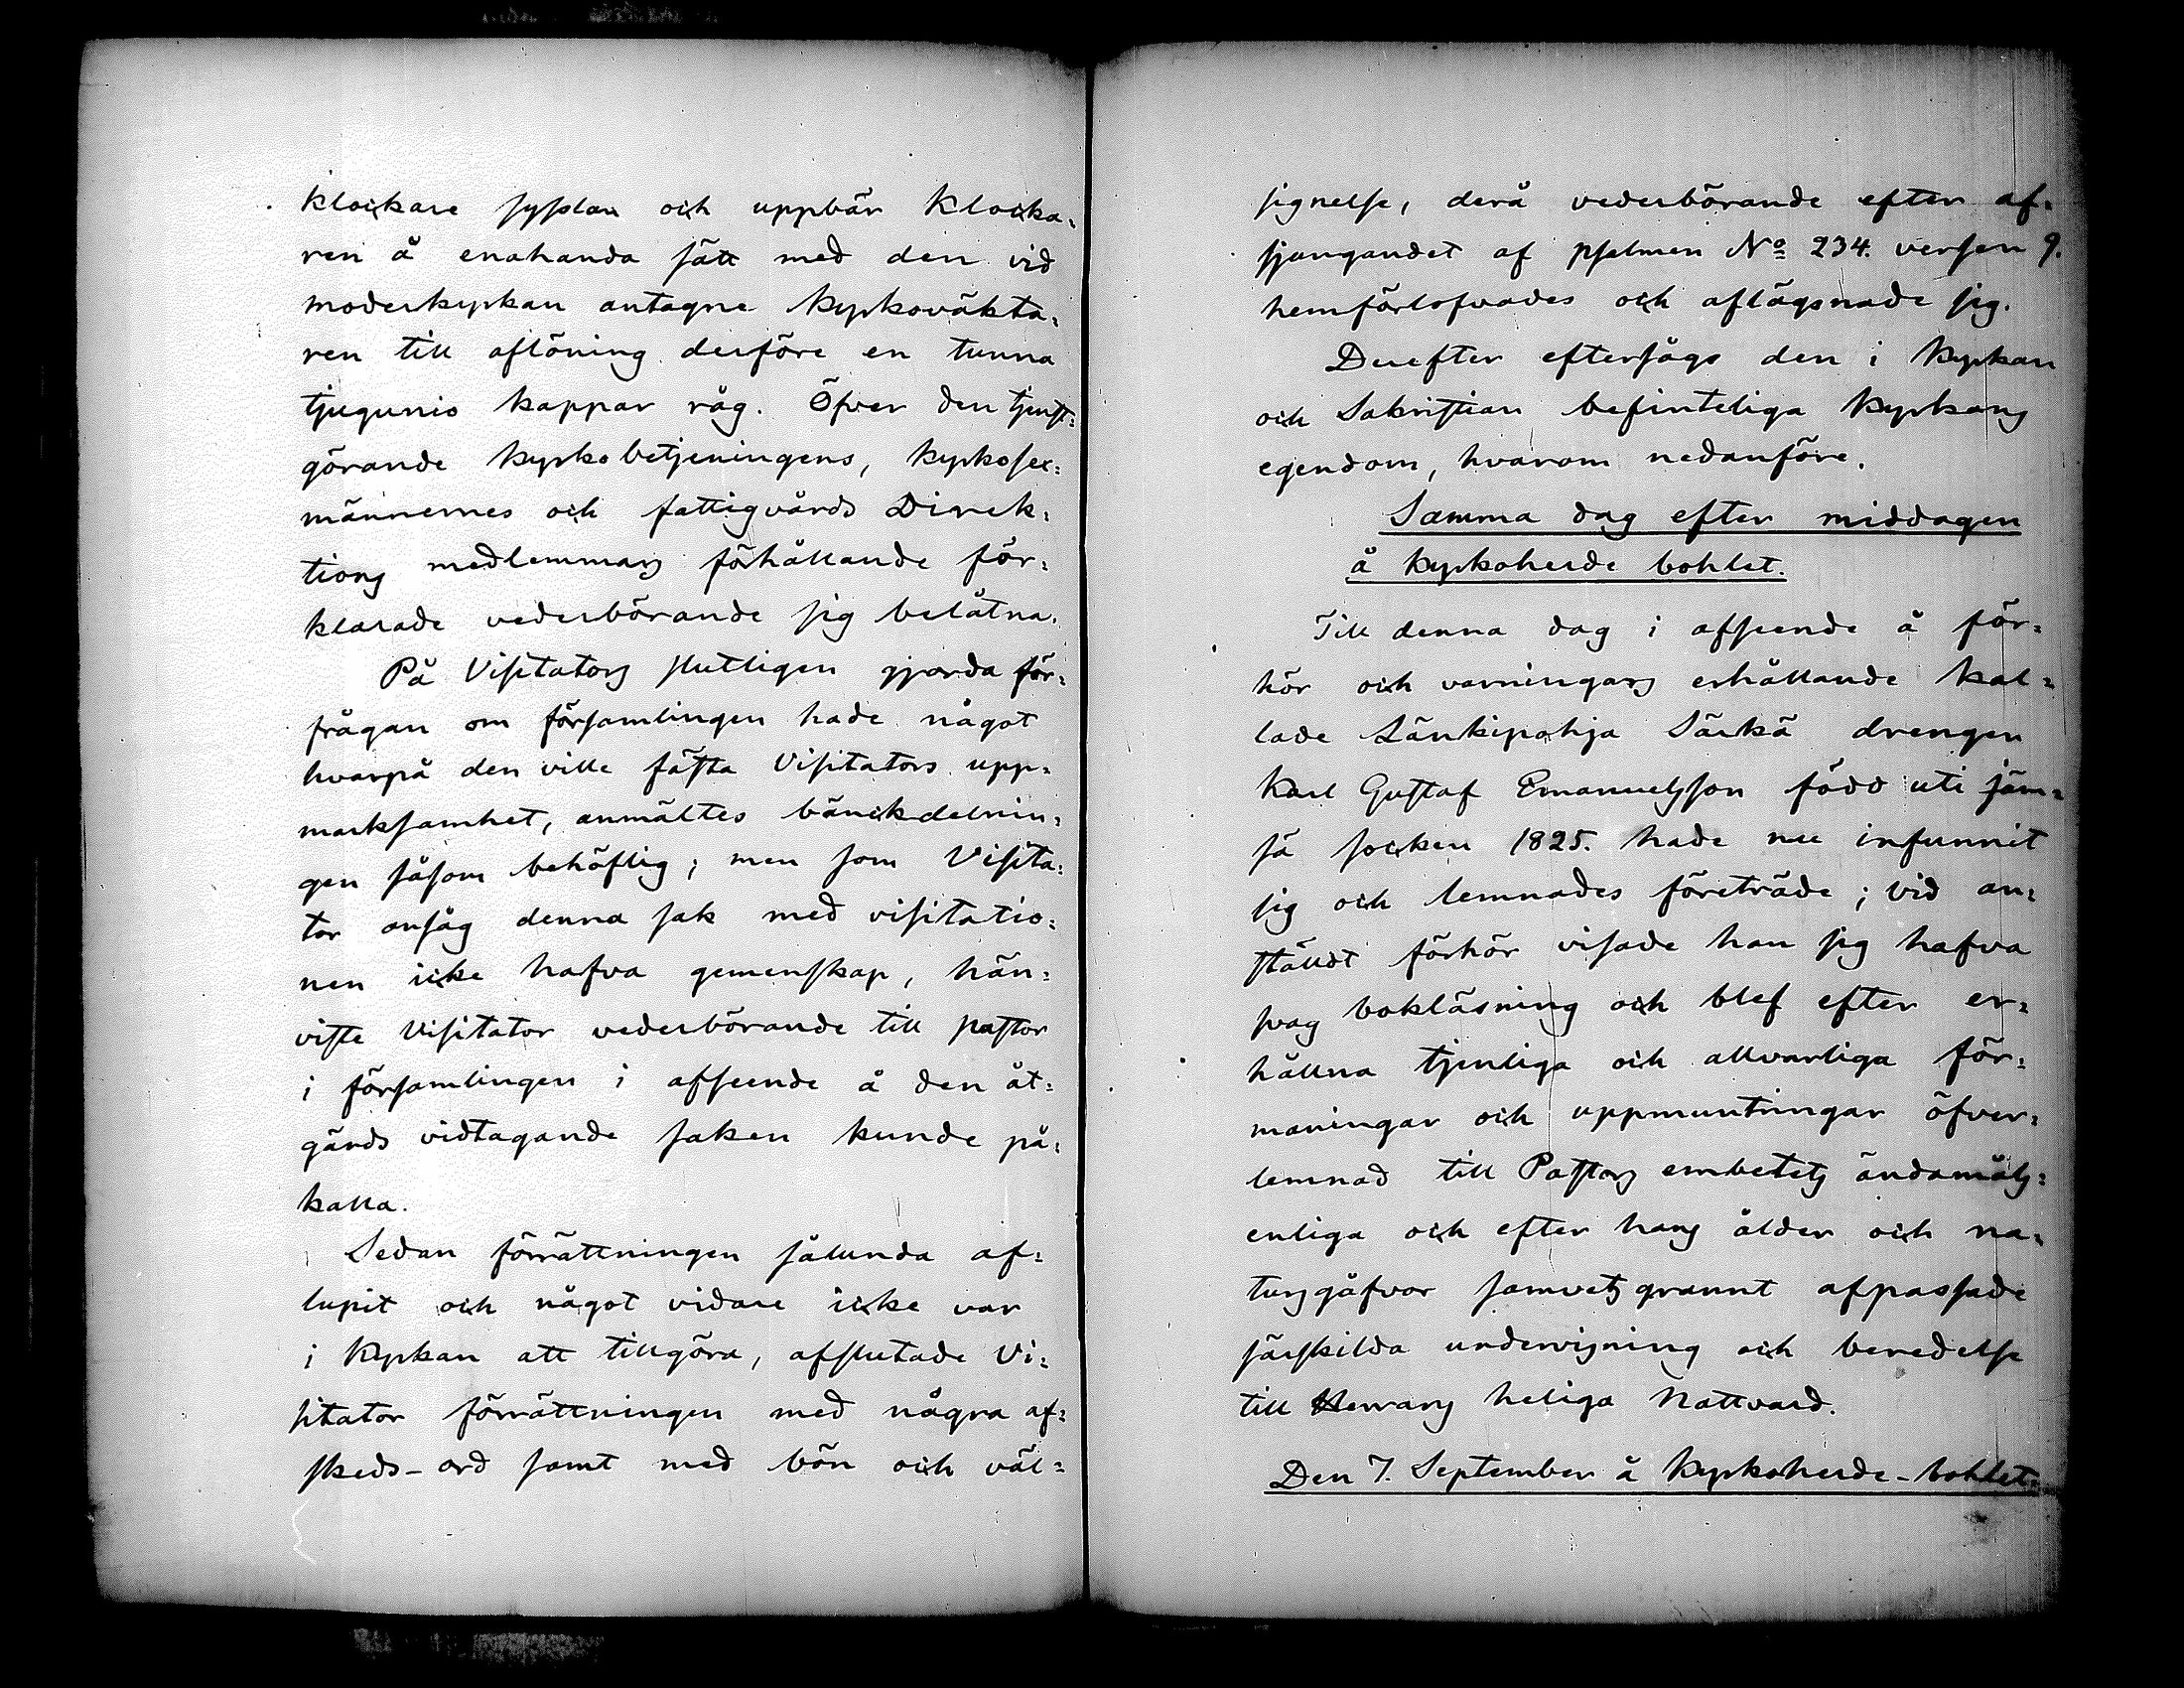 klockare sysslan och uppbär klocka-
ren å enahanda sätt med den vid
moderkyrkan antagne kyrkoväkta-
ren till aflöning derföre en tunna
tjugunio kappar råg. Öfver den tjenst-
görande kyrkobetjeningens, kyrkosex-
männernes och fattigvårds Direk-
tions medlemmars förhållande för-
klarade vederbörande sig belåtna.
På Visitators slutligen gjorda för-
frågan om församlingen hade något
hvarpå den ville fästa Visitators upp-
marksamhet, anmältes bänckdelnin-
gen såsom behöflig; men som Visita-
tor ansåg denna sak med visitatio-
nen icke hafva gemenskap, hän-
viste Visitator vederbörande till pastor
i församlingen i afseende å den åt-
gärds vidtagande saken kunde på-
kalla.
Sedan förrättningen sålunda af-
lupit och något vidare icke var
i Kyrkan att tillgöra, afslutade Vi-
sitator förrättningen med några af-
skeds-ord samt med bön och väl-
signelse, derå vederbörande efter af-
sjungandet af psalmen No 234. versen 9.
hemförlofvades och aflägsnade sig.
Derefter eftersågs den i Kyrkan
och Sakristian befinteliga Kyrkans
egendom, hvarom nedanföre.
Samma dag efter middagen
å Kyrkoherde bohlet.
Till denna dag i afseende å för-
hör och varningars erhållande kal-
lade Länkipohja Särkä drengen
Karl Gustaf Emanuelsson född uti Jäm-
sä socken 1825. hade nu infunnit
sig och lemnades företräde; vid an-
ställdt förhör visade han sig hafva
svag bokläsning och blef efter er-
hållna tjenliga och allvarliga för-
maningar och uppmuntringar öfver-
lemnad till Pastors embetets ändamåls-
enliga och efter hans ålder och na-
tursgåfvor samvetsgrannt afpassade
särskilda undervisning och beredelse
till Herrans heliga Nattvard.
Den 7. September å Kyrkoherde-bohlet.